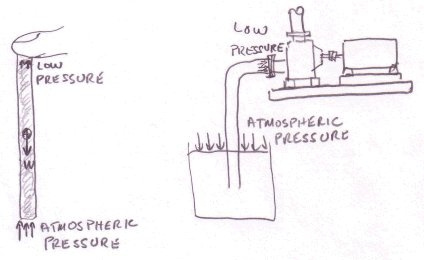 LOW
PRESSURE
W
ATMOSPHERIC
PRESSURE
LOW
PRESSURE
ATMOSPHERIC
PRESSURE